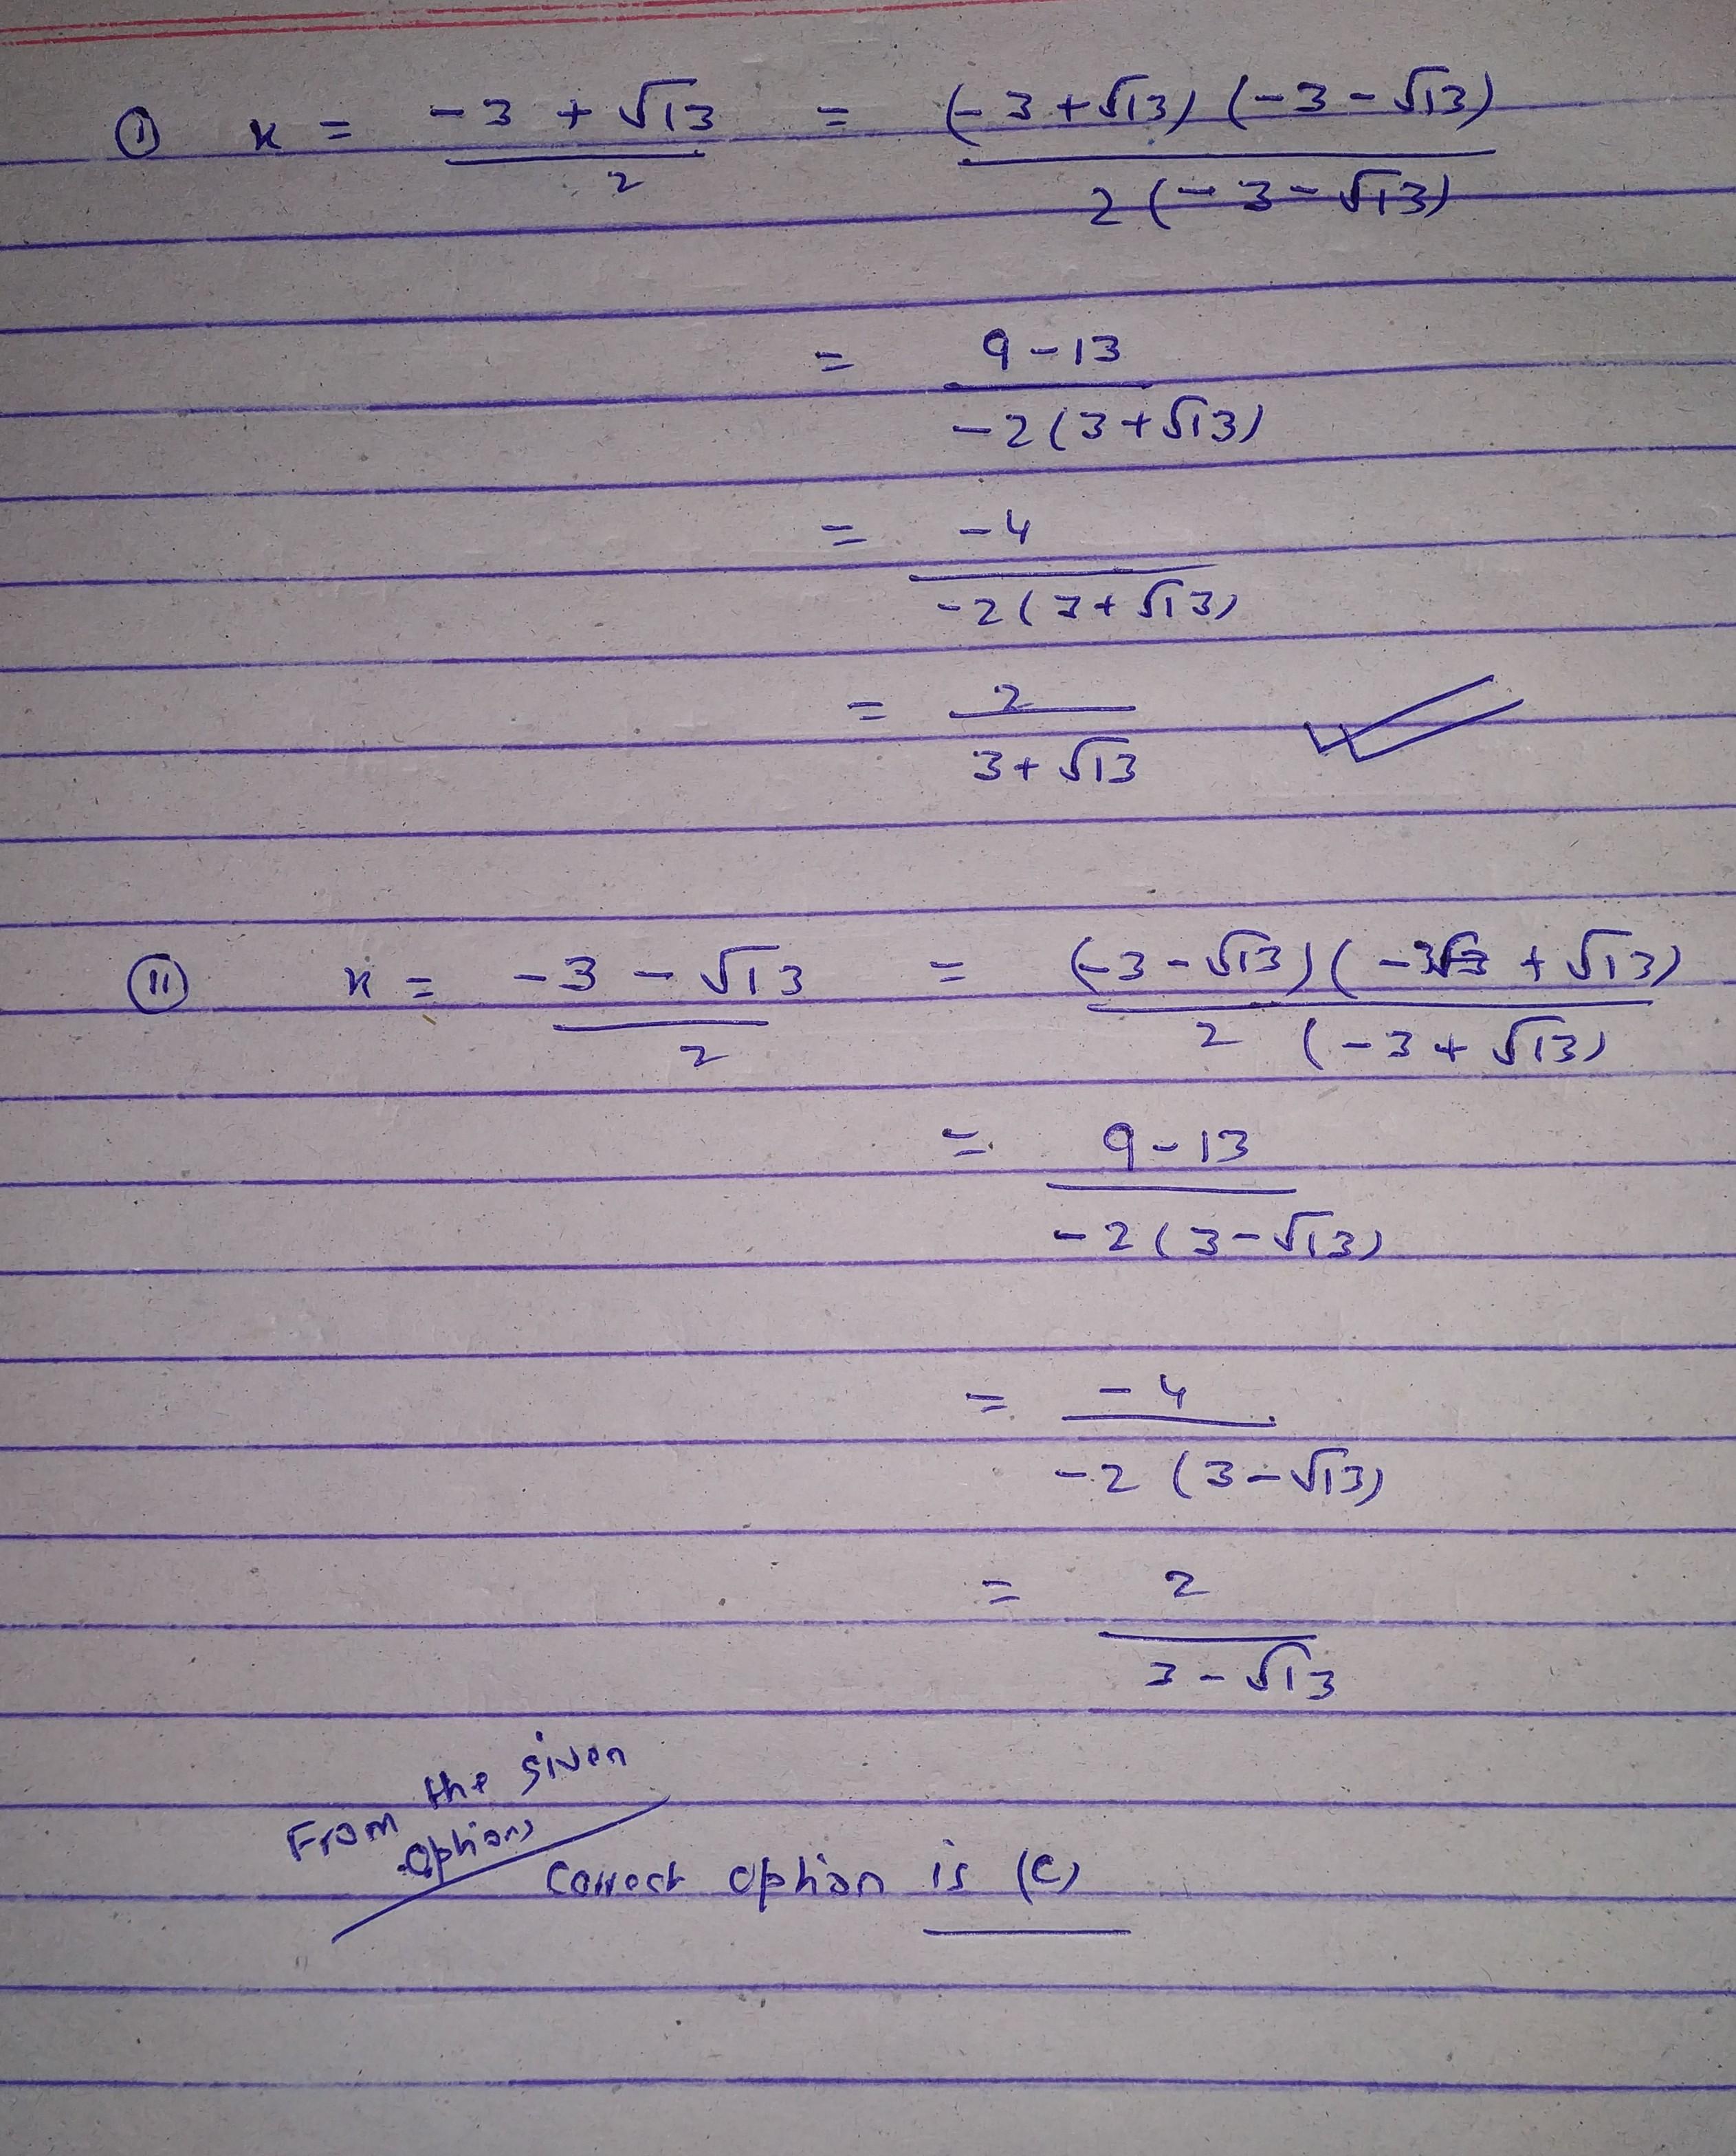 ① x = (-3 + √13)/2 = (-3+√13)(-3-√13)/2(-3-√13)
= 9-13/-2(3+√13)
= -4/-2(3+√13)
= 2/3+√13 ✓
⑪ x = (-3-√13)/2 = (-3-√13)(-3+√13)/2(-3+√13)
= 9-13/-2(3-√13)
= -4/-2(3-√13)
= 2/3-√13
From the given
options
Correct option is (C)